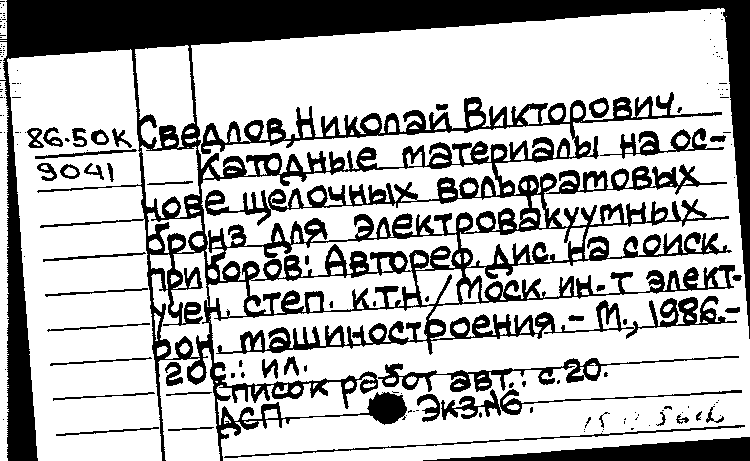 86-50К Сведлов, Николай Викторович.
9041 Катодные материалы на ос-
нове щелочных вольфратовых
бронз для электровакуумных
приборов: Автореф. дис. на соиск.
учен. степ. к.т.н. / Моск. ин-т элект-
рон. машиностроения. – М., 1986. –
20с.: ил.
Список работ авт.: с.20.
ДСП. Экз.№6.